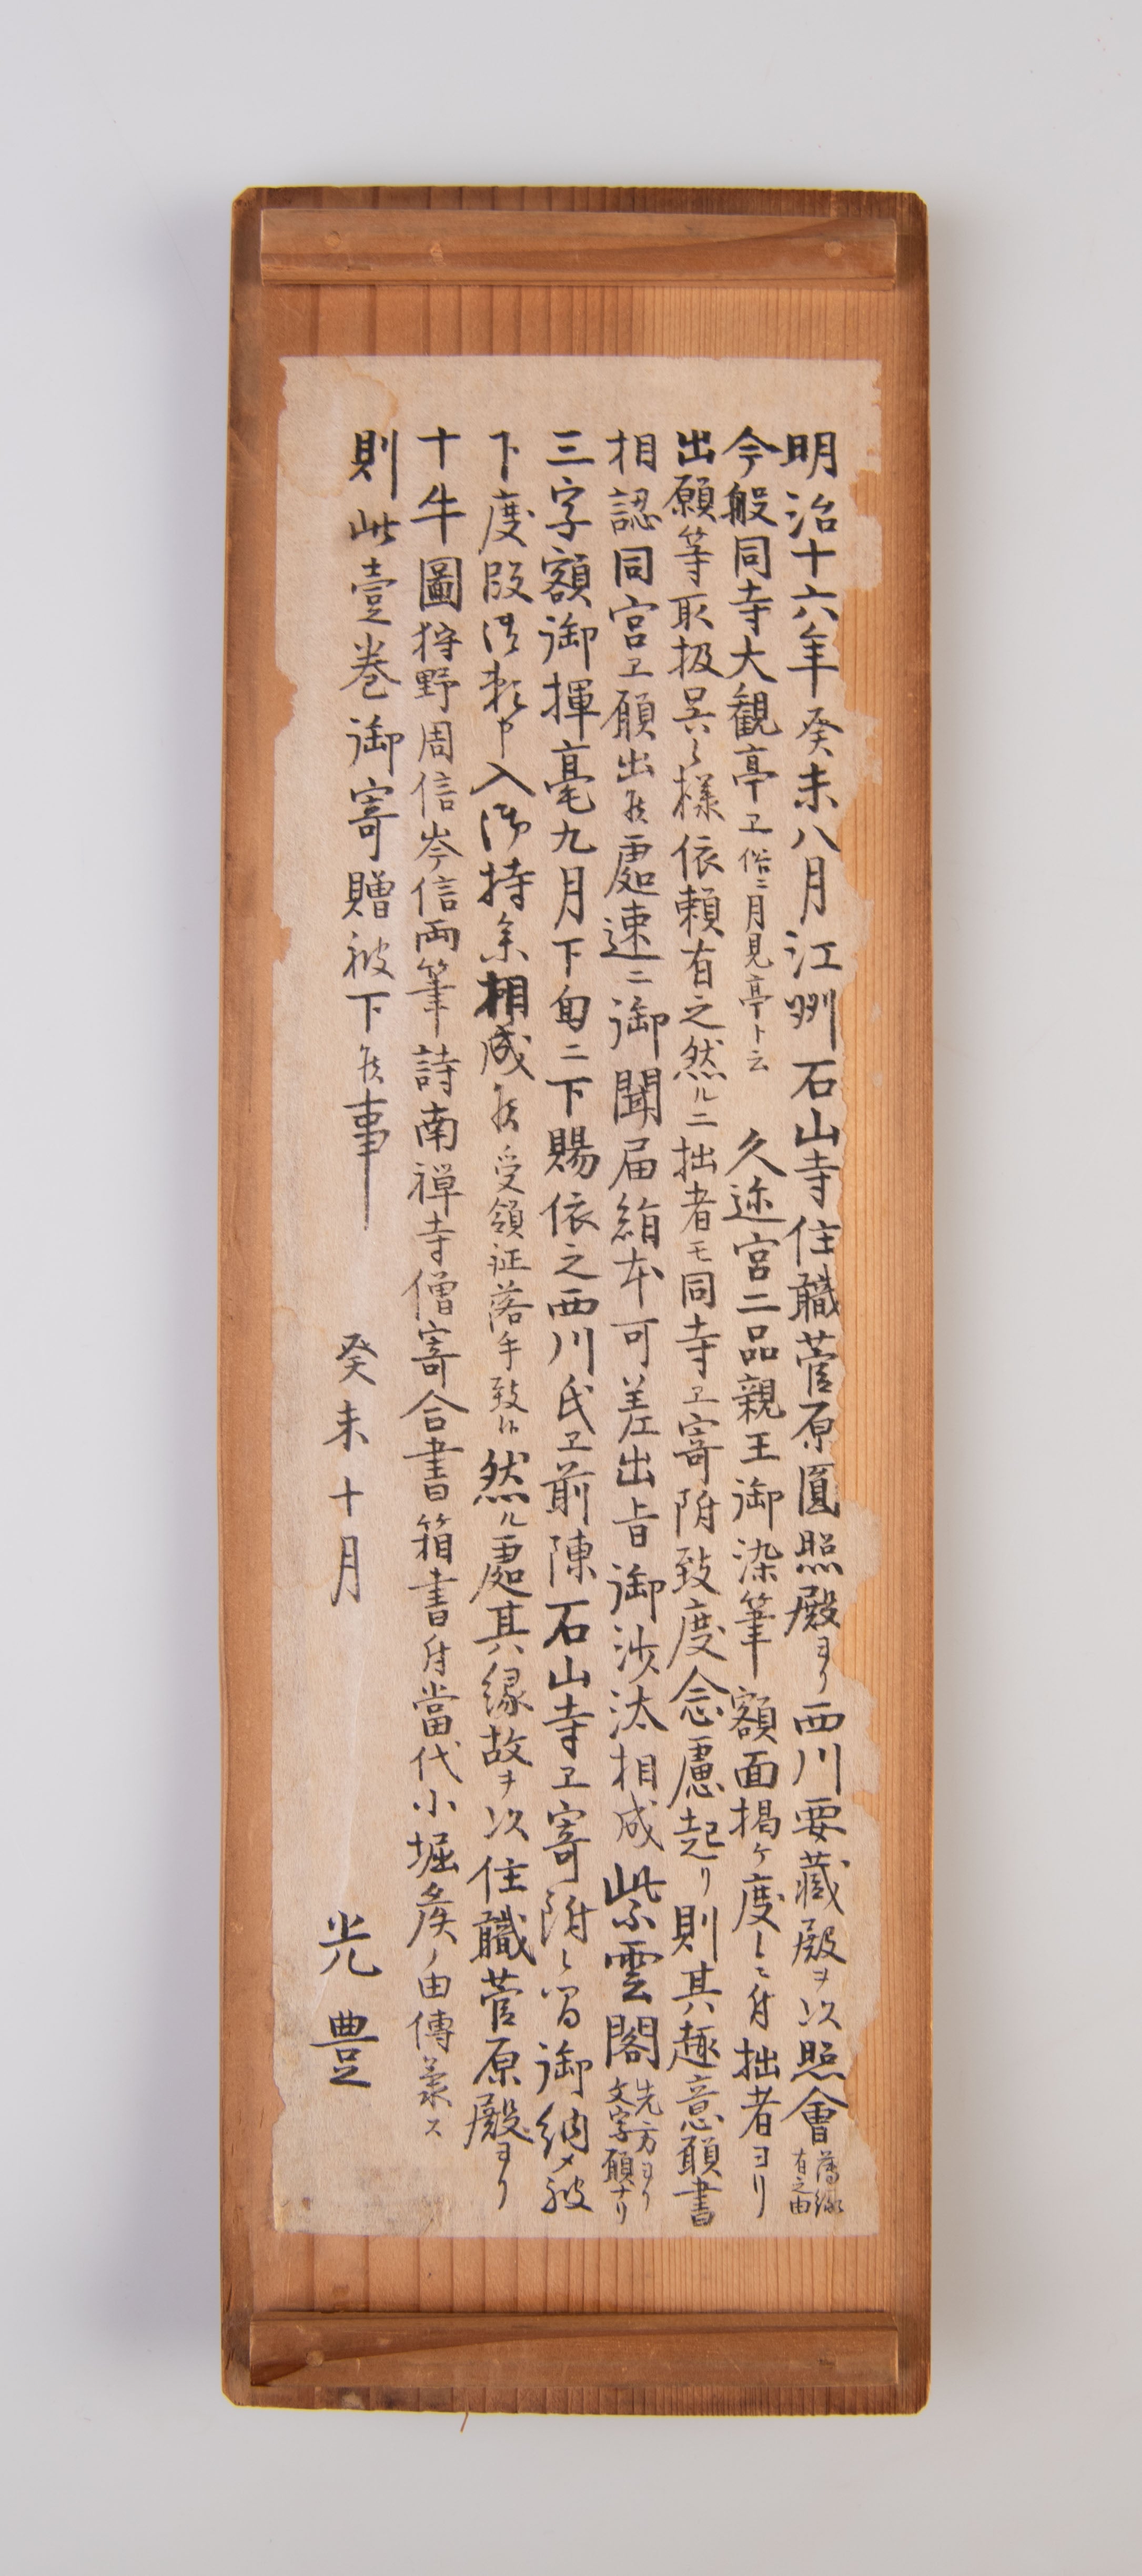 明治十六年癸未八月江州石山寺住職菅原圓照殿ヨリ西川要蔵殿ヲ以照會舊縁有之由
今般同寺大観亭ヱ俗ニ月見亭ト云 久邇宮二品親王御染筆額面掲ケ度ニ付拙者ヨリ
出願等取扱呉候様依頼有之然ルニ拙者モ同寺ヱ寄附致度念慮起リ則其趣意願書
相認同宮ヱ願出候處速ニ御聞届絹本可差出旨御沙汰相成紫雲閣先方ヨリ文字願ナリ
三字額御揮毫九月下旬ニ下賜依之西川氏ヱ前陳石山寺ヱ寄附候間御納メ被
下度段御頼申入御持參相成候受領証落手致候然ル處其縁故ヲ以住職菅原殿ヨリ
十牛圖狩野周信岑信両筆詩南禅寺僧寄合書箱書付當代小堀矦ノ由傳承ス
則此壹巻御寄贈被下候事
癸未十月 光豊